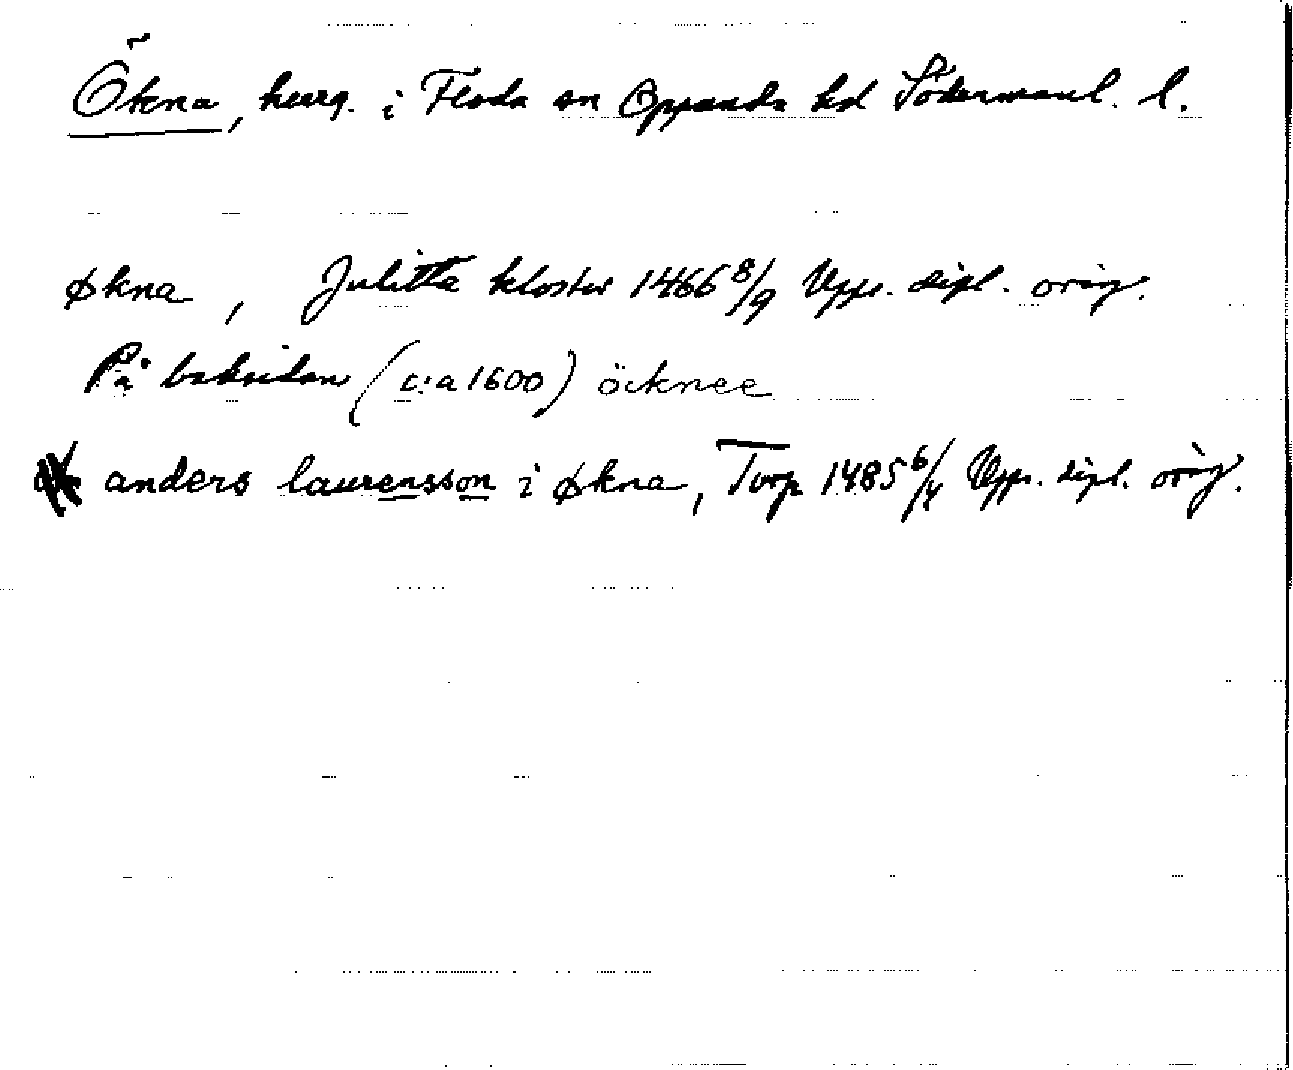 Ökna, herrg. i Floda sn Oppunda hd Södermanl. l.
økna, Julitta kloster 1466 8/9 Upps. dipl. orig.
På baksidan (c:a 1600) öcknee
anders laurensson i økna, Torp 1485 6/4 Upps. dipl. orig.